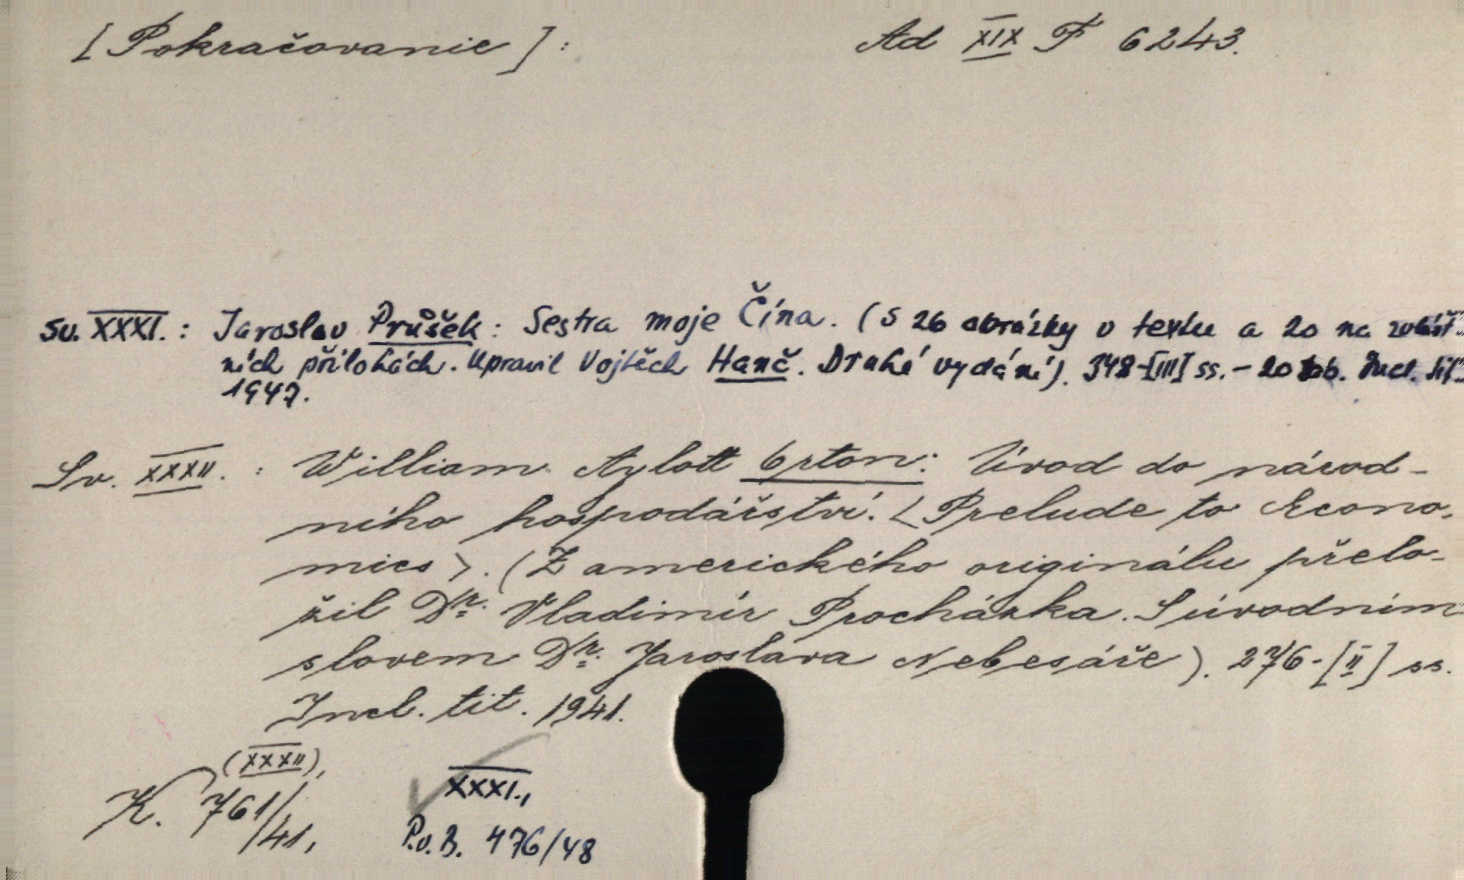 [Pokračovanie]: Ad XIX F 6243.
Sv. XXXI.: Jaroslav Průšek: Sestra moje Čína. (S 26 obrázky v textu a 20 na zvlášt-
ních přílohách. Upravil Vojtěch Hanč. Druhé vydání). 348-[III] ss. - 20 tab. Incl. tit.
1947.
Sv. XXXII. : William Aylott Orton: Úvod do národ-
ního hospodářství. <Prelude to Econo-
mics>. (Z amerického originálu přelo-
žil Dr. Vladimír Procházka. S úvodním
slovem Dr. Jaroslava Nebesáře). 276-[II] ss.
Incl. tit. 1941.
(XXXII), XXXI.,
K. 761/41, P.v.B. 476/48